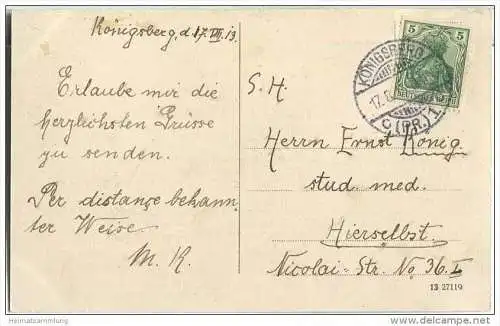 Königsberg, d. 17. VIII. 13.
Erlaube mir die
herzlichsten Grüsse
zu senden.
Per distance bekann
ter Weise
M. K.
S. H.
Herrn Ernst König
stud. med.
Hierselbst.
Nicolai-Str. No 36. I
5 5
KÖNIGSBERG
17.
(PR.) 1
13 27119
Heimatsammlung
www.delcampe.net